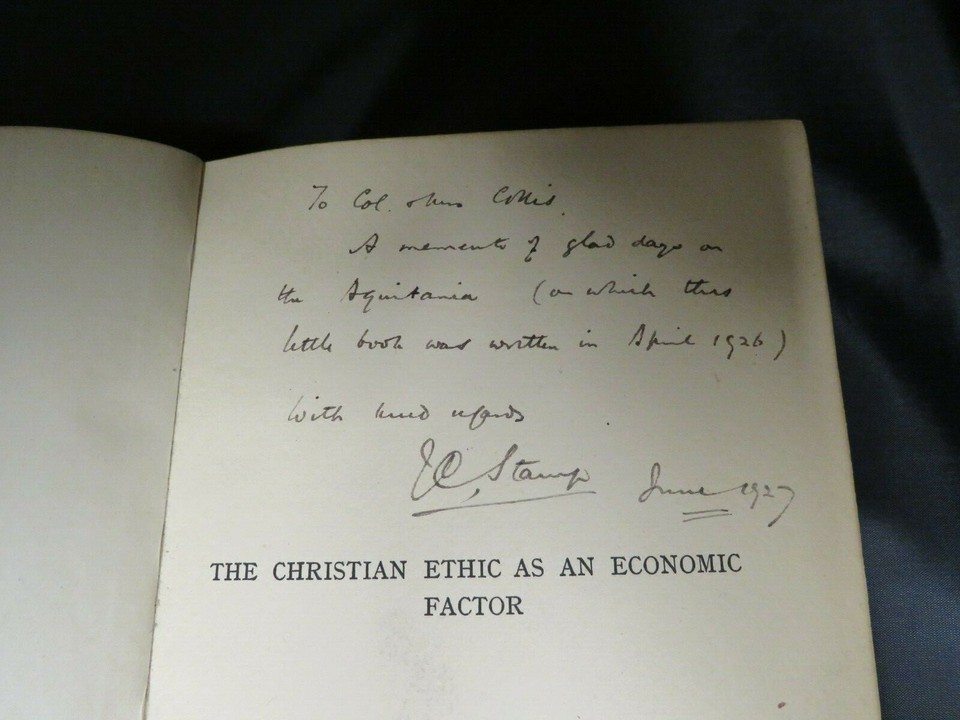 To Col. & Mrs Collis.
A memento of glad days on
the Aquitania (on which this
little book was written in April 1926)
With kind regards
J C, Stamp June 1927
THE CHRISTIAN ETHIC AS AN ECONOMIC
FACTOR